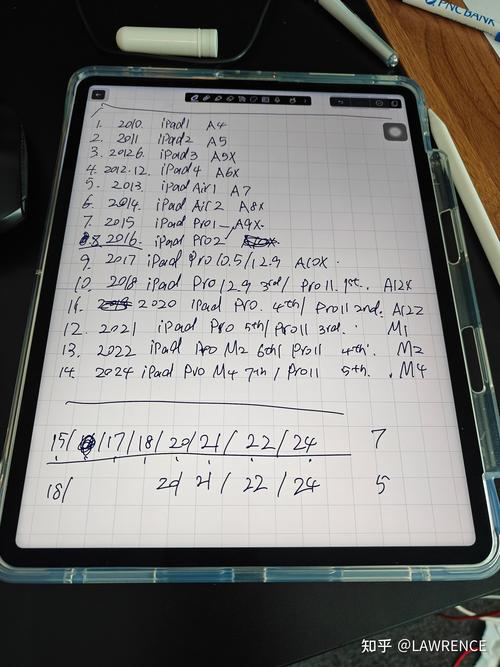 PNC BANK
1. 2010. iPad1 A4
2. 2011 iPad2 A5
3. 2012.6. iPad3 A5X
4. 2012.12. iPad4 A6X
5. 2013. iPad Air1 A7
6. 2014. iPad Air2 A8X
7. 2015 iPad Pro1 A9X.
8. 2016. iPad Pro2
9. 2017 iPad Pro 10.5/12.9 A10X.
10. 2018 iPad Pro 12.9 3rd/ Pro11. 1st. A12X
11. 2020 iPad Pro. 4th/ Pro11 2nd. A12Z
12. 2021 iPad Pro 5th/ Pro11 3rd. M1
13. 2022 iPad Pro M2 6th/ Pro11 4th. M2
14. 2024 iPad Pro M4 7th / Pro11 5th. M4
15/ /17/ /18/ 20/ 21/ 22 / 24 7
18/ 20/ 21/ 22 / 24 5
知乎 @LAWRENCE